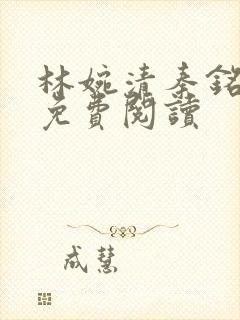 林婉清秦銘
免費閱讀
成慧